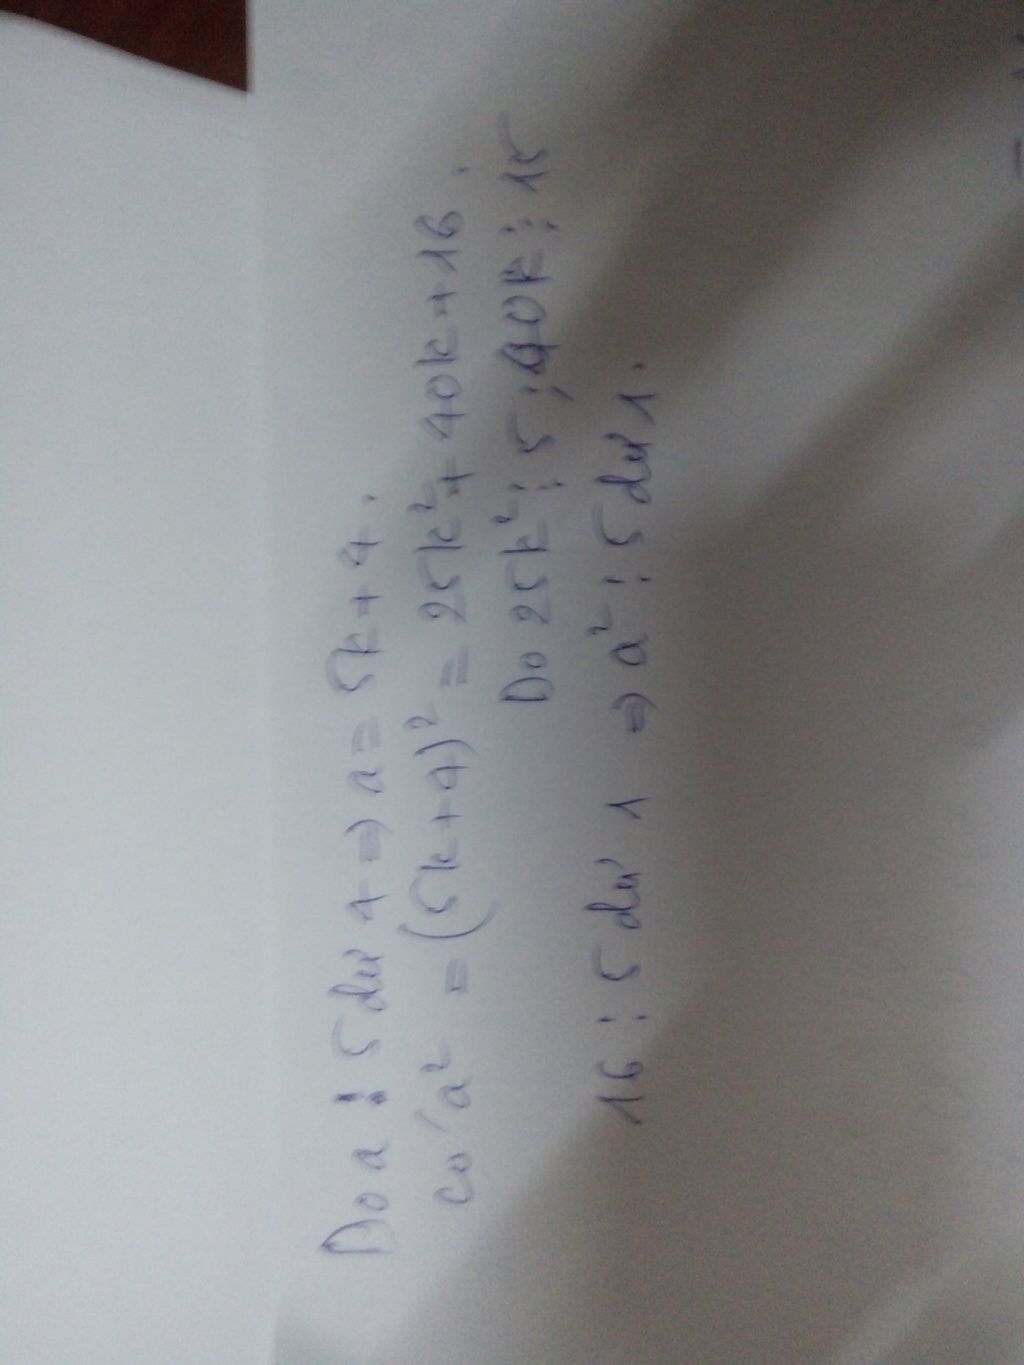 Do a : 5 dư 4 => a = 5k + 4.
có a² = (5k + 4)² = 25k² + 40k + 16.
Do 25k² ⋮ 5 ; 40k ⋮ 15
16 : 5 dư 1 => a² : 5 dư 1.